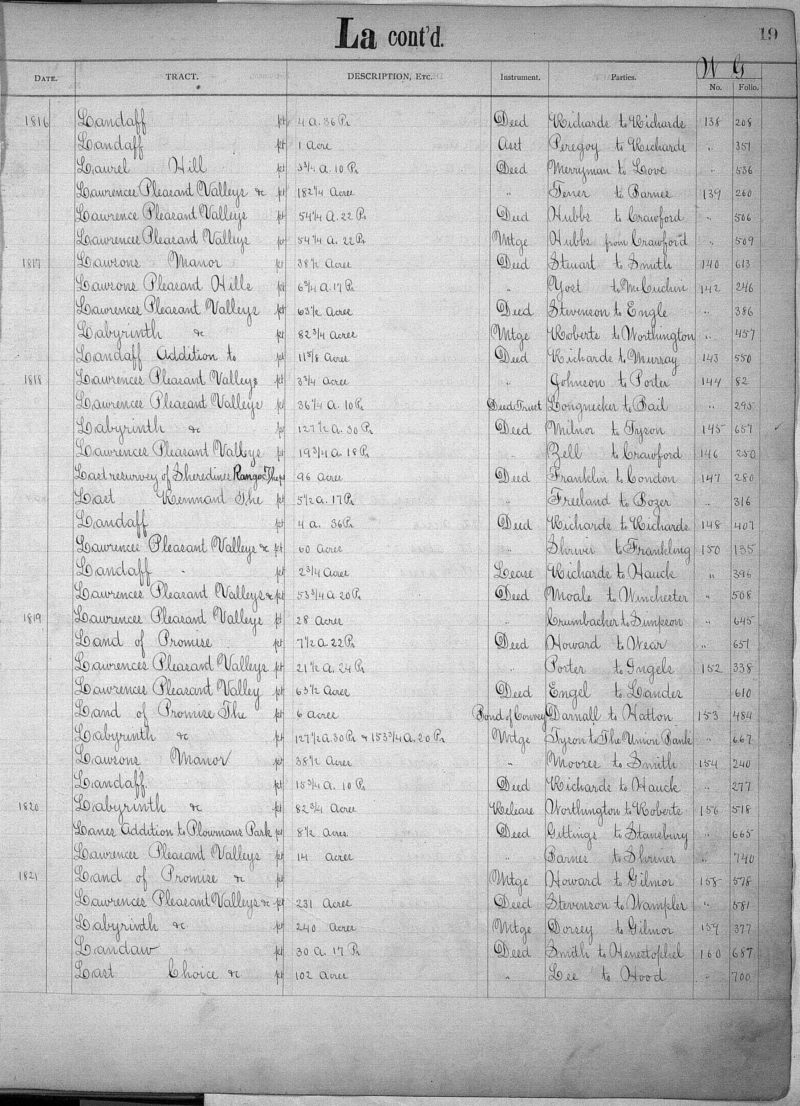 La cont'd.
19
W G
DATE. TRACT. DESCRIPTION, Etc. Instrument. Parties. No. Folio.
1816 Landaff pt 4 a. 36 Ps Deed Richards to Richards 138 208
Landaff pt 1 acre Asst Peregoy to Richards " 351
Laurel Hill pt 3 3/4 a. 10 Ps Deed Merryman to Love " 536
Lawrences Pleasant Valleys &c pt 182 1/4 Acres " to Barnes 139 260
Lawrence Pleasant Valleys pt 54 1/4 a. 22 Ps Deed Hubbs to Crawford " 506
Lawrences Pleasant Valleys pt 54 1/4 a. 22 Ps Mtge Hubbs from Crawford " 509
1817 Lawsons Manor pt 38 1/2 Acres Deed Steuart to Smith 140 613
Lawsons Pleasant Hills pt 6 3/4 a. 17 Ps " Yost to McCuchen 142 246
Lawrences Pleasant Valleys pt 63 1/2 Acres Deed Stevenson to Engle " 386
Labyrinth &c pt 82 3/4 Acres Mtge Roberts to Worthington " 457
Landaff Addition to pt 11 5/8 Acres Deed Richards to Murray 143 550
1818 Lawrences Pleasant Valleys pt 3 3/4 Acres " Johnson to Porter 144 82
Lawrences Pleasant Valleys pt 36 1/4 a. 10 Ps Deed Trust Longnecker to Bail " 295
Labyrinth &c pt 127 1/2 a. 30 Ps Deed Milnor to Tyson 145 657
Lawrences Pleasant Valleys pt 19 3/4 a. 18 Ps " Zell to Crawford 146 250
Last resurvey of Sheredines Range The pt 96 Acres Deed Franklin to Condon 147 280
Last Remnant The pt 5 1/2 a. 17 Ps " Freeland to Bozer " 316
Landaff pt 4 a. 36 Ps Deed Richards to Richards 148 407
Lawrences Pleasant Valleys &c pt 60 Acres " Shriver to Frankling 150 135
Landaff pt 2 3/4 Acres Lease Richards to Hauck " 396
Lawrences Pleasant Valleys &c pt 53 3/4 a. 20 Ps Deed Moale to Winchester " 508
1819 Lawrences Pleasant Valleys pt 28 Acres " Crumbacher to Simpson " 645
Land of Promise pt 7 1/2 a. 22 Ps Deed Howard to Wear " 651
Lawrences Pleasant Valleys pt 21 1/2 a. 24 Ps " Porter to Ingels 152 338
Lawrences Pleasant Valley pt 63 1/2 Acres Deed Engel to Landes 610
Land of Promise The pt 6 acres Bond of Convey Darnall to Hatton 153 484
Labyrinth &c pt 127 1/2 a. 30 Ps & 153 3/4 a. 20 Ps Mtge Tyson to The Union Bank " 667
Lawsons Manor pt 38 1/2 Acres " Moores to Smith 154 240
Landaff pt 15 3/4 a. 10 Ps Deed Richards to Hauck " 277
1820 Labyrinth &c pt 82 3/4 Acres Release Worthington to Roberts 156 518
Lanes Addition to Plowmans Park pt 8 1/2 Acres Deed Gittings to Stansbury " 665
Lawrences Pleasant Valleys pt 14 Acres " Barnes to Shriner " 740
1821 Land of Promise &c pt Mtge Howard to Gilmor 158 578
Lawrences Pleasant Valleys &c pt 231 Acres Deed Stevenson to Wampler " 581
Labyrinth &c pt 240 Acres Mtge Dorsey to Gilmor 159 377
Landaw pt 30 a. 17 Ps Deed Smith to Henestophel 160 687
Last Choice &c pt 102 Acres " Lee to Hood " 700